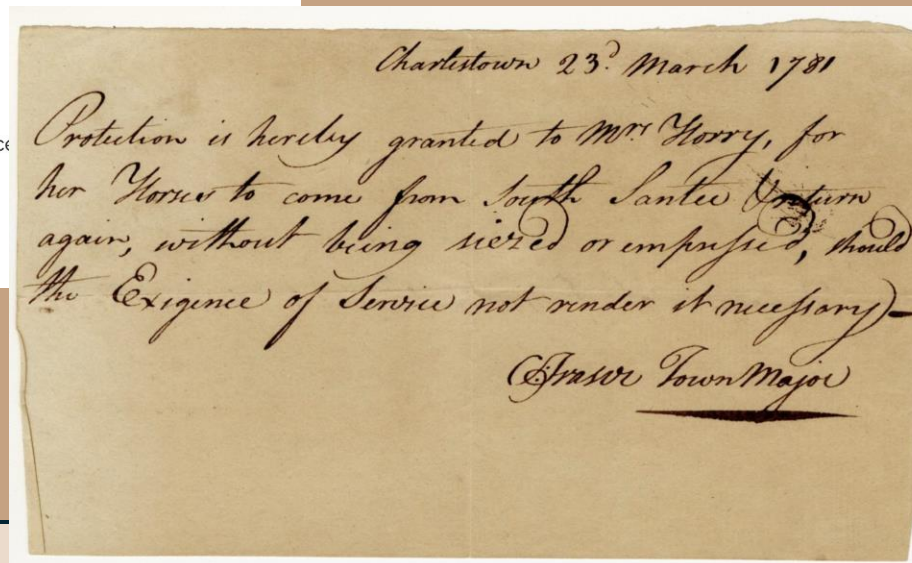 ce
Charlestown 23d. March 1781
Protection is hereby granted to Mrs Horry, for
her Horses to come from South Santee & return
again, without being siezed or empressed, should
the Exigence of Service not render it necessary)—
C: Fraser Town Major